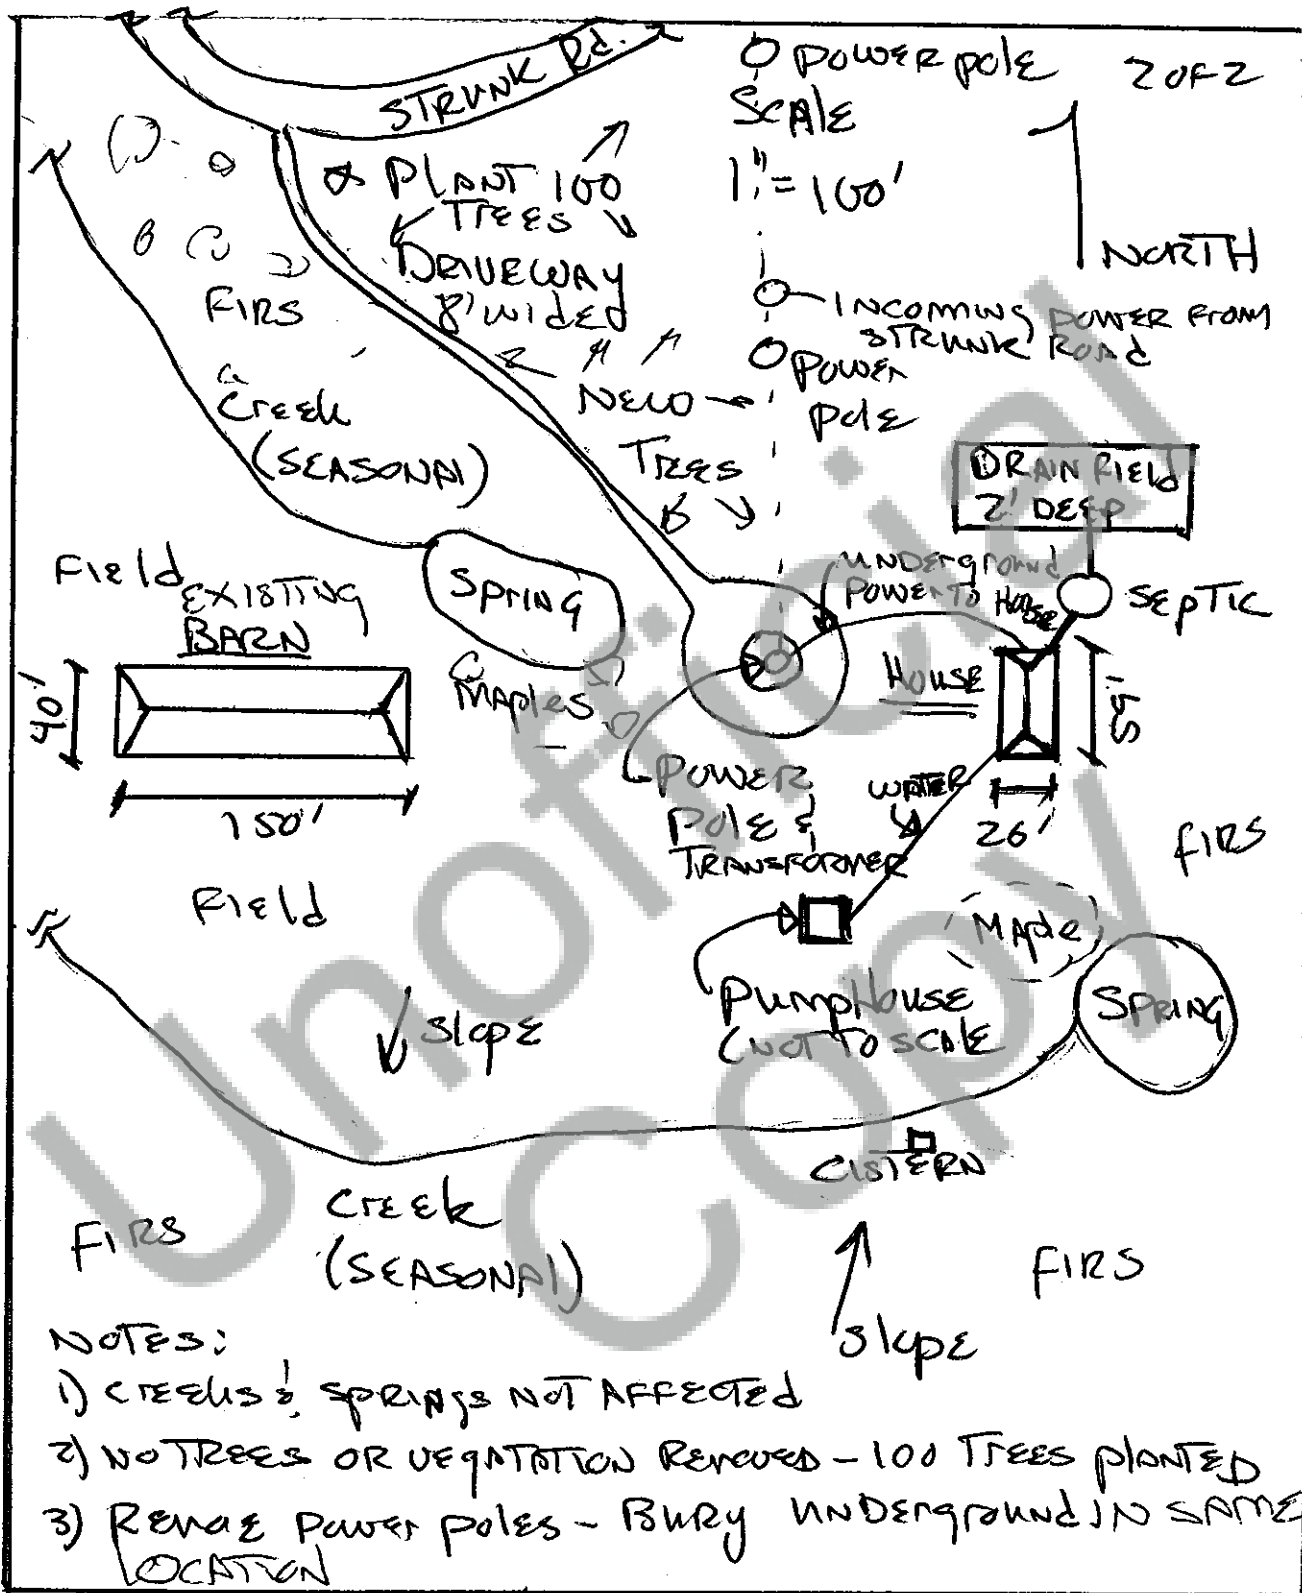 STRUNK Rd.
POWER pole
2 OF 2
SCALE
1" = 100'
NORTH
PLANT 100
TREES
DRIVEWAY
8' WIDED
FIRS
INCOMING POWER FROM
STRUNK ROAD
POWER
pole
NEW
TREES
Creek
(SEASONAL)
DRAIN FIELD
2' DEEP
SEPTIC
UNDERGROUND
POWER TO HOUSE
Field
EXISTING
BARN
SPRING
MAPLES
HOUSE
40'
150'
26'
POWER
POLE &
TRANSFORMER
WATER
FIRS
Field
MAPLE
SPRING
PUMPHOUSE
(NOT TO SCALE
Slope
CISTERN
Creek
(SEASONAL)
FIRS
FIRS
Slope
NOTES:
1) CREEKS & SPRINGS NOT AFFECTED
2) NO TREES OR VEGATATION REMOVED - 100 TREES PLANTED
3) REMOVE POWER POLES - BURY UNDERGROUND IN SAME
LOCATION
Unofficial
Copy